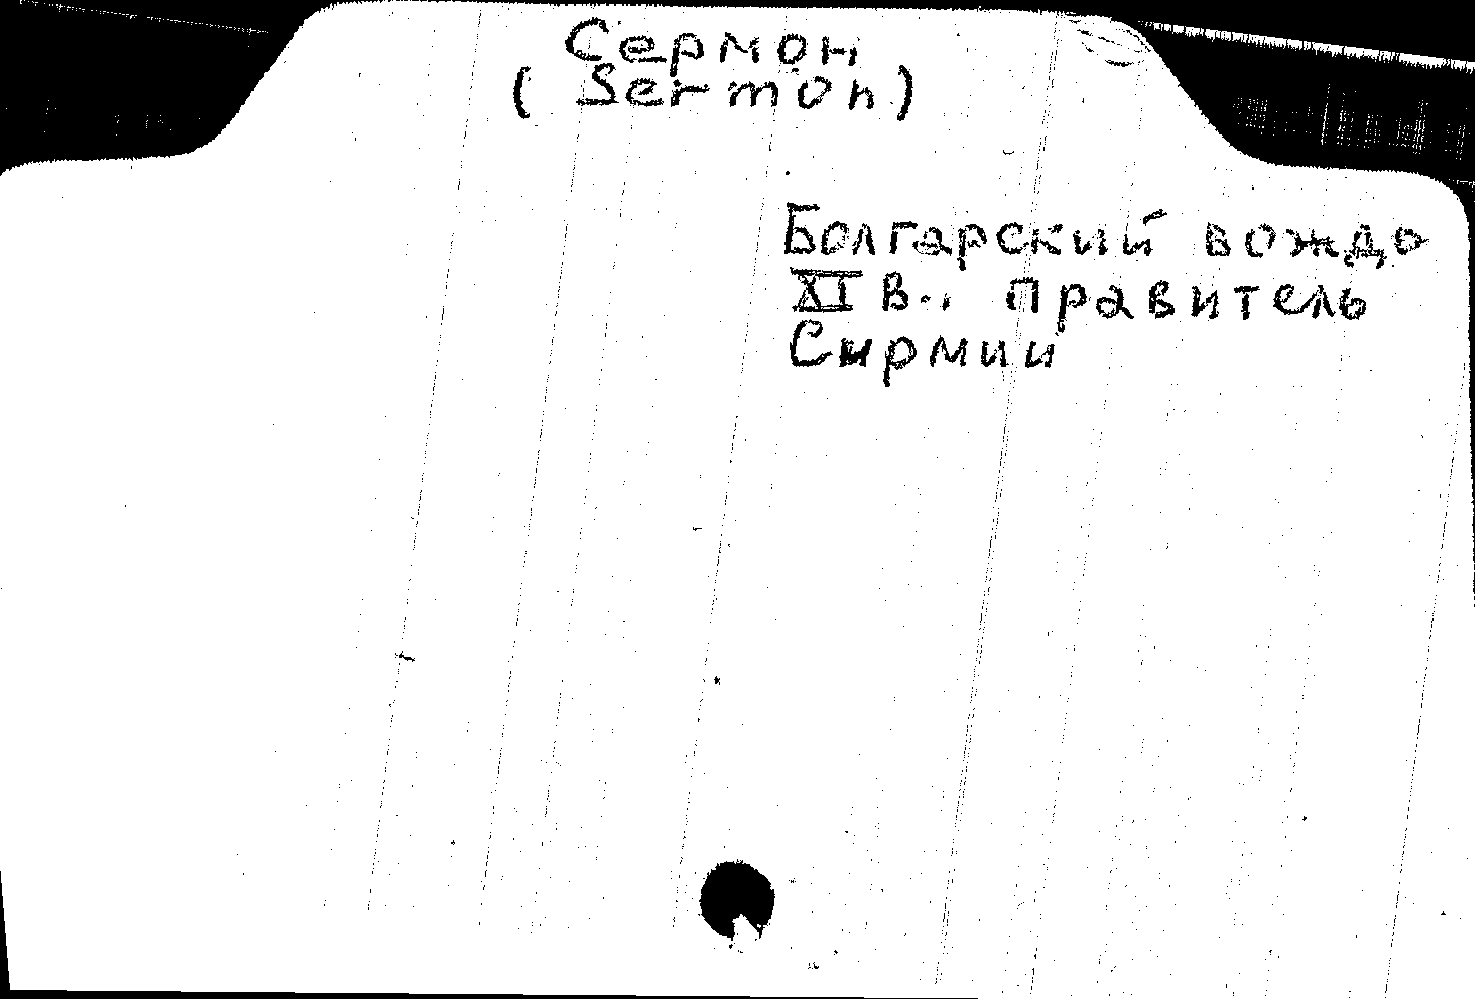 Сермон
( Sermon )
Болгарский вождь
XI в., правитель
Сирмии